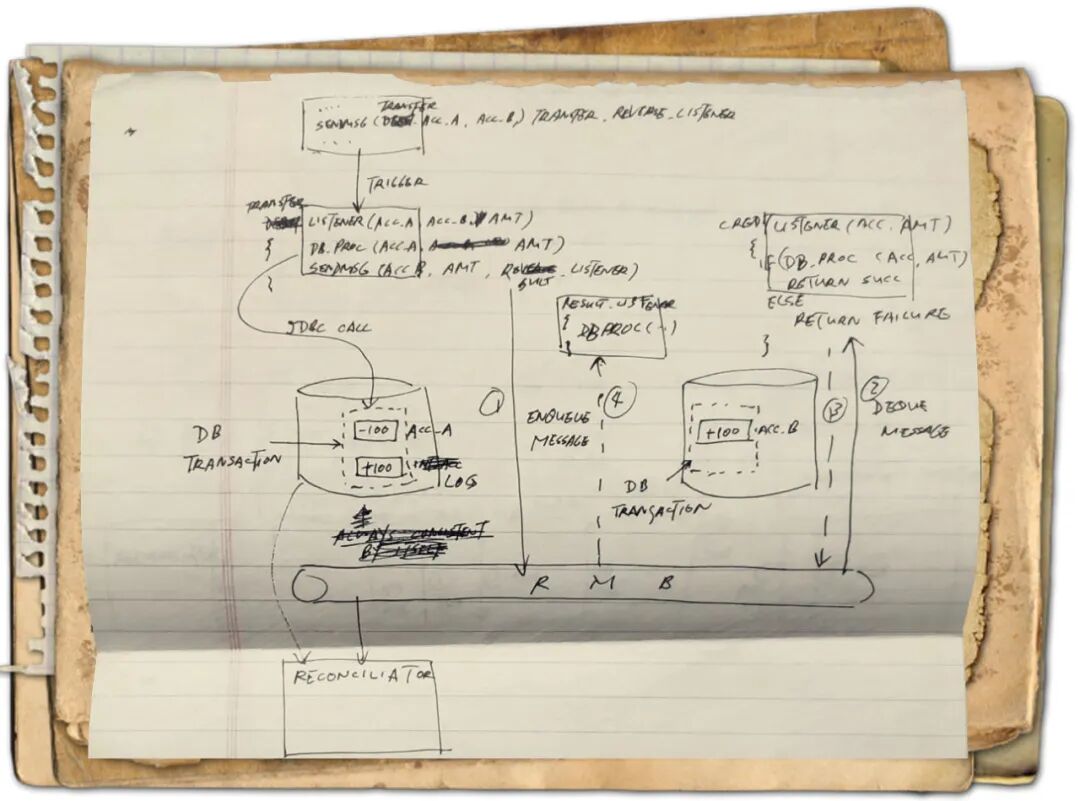 TRANSFER
SENDMSG (ACC.A, ACC.B,) TRANSFER, REVERSE_LISTENER
TRIGGER
TRANSFER
LISTENER (ACC.A, ACC.B, AMT)
{ DB.PROC (ACC.A, AMT)
SENDMSG (ACC.B, AMT, RESULT_LISTENER)
}
JDBC CALL
CREDIT LISTENER (ACC, AMT)
{ IF (DB.PROC (ACC, AMT)
RETURN SUCC
ELSE
RETURN FAILURE
}
RESULT_LISTENER
{ DB PROC (--)
}
1
ENQUEUE
MESSAGE
4
3
2
DEQUE
MESSAGE
DB
TRANSACTION
-100 ACC-A
+100
LOG
+100 ACC.B
DB
TRANSACTION
ALWAYS CONSISTENT
BY ITSELF
R M B
RECONCILIATOR